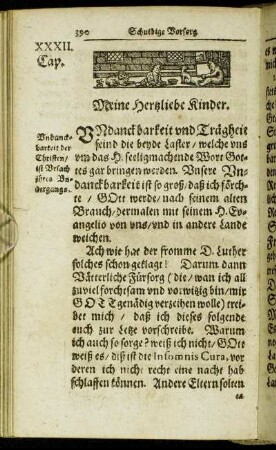 390 Schuldige Vorsorg
XXXII.
Cap.
Meine Hertzliebe Kinder.
Vndanck-
barkeit der
Christen/
ist Vrsach
jhres Vn-
tergangs.
VNdanckbarkeit vnd Trägheit
seind die beyde Laster/ welche vns
vm das H. seeligmachende Wort Got-
tes gar bringen werden. Vnsere Vn-
danckbarkeit ist so groß/ daß ich förch-
te/ GOtt werde/ nach seinem alten
Brauch/ dermalen mit seinem H. Ev-
angelio von vns/ vnd in andere Land
weichen.
Ach wie hat der fromme D. Luther
solches schon geklagt! Darum dann
Vätterliche Fürsorg (die/ wan ich all-
zuviel forchtsam vnd vorwitzig bin/ mir
GOTT gnädig verzeihen wolle) trei-
bet mich/ daß ich dieses folgende
euch zur Letze vorschreibe. Warum
ich auch so sorge? weiß ich nicht/ GOtt
weiß es/ diß ist die Insomnis Cura, vor
deren ich nicht recht eine nacht hab
schlaffen können. Andere Eltern solten